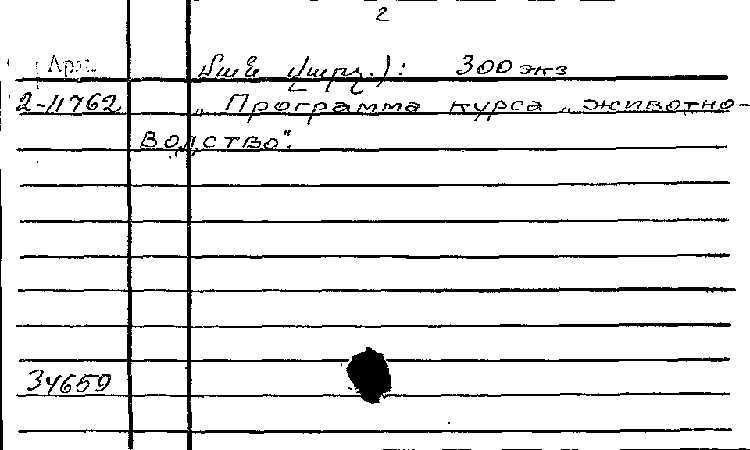 2
Арм.
մամ վարչ.): 300 экз
2-11762 „Программа курса „животно-
водство".
34659